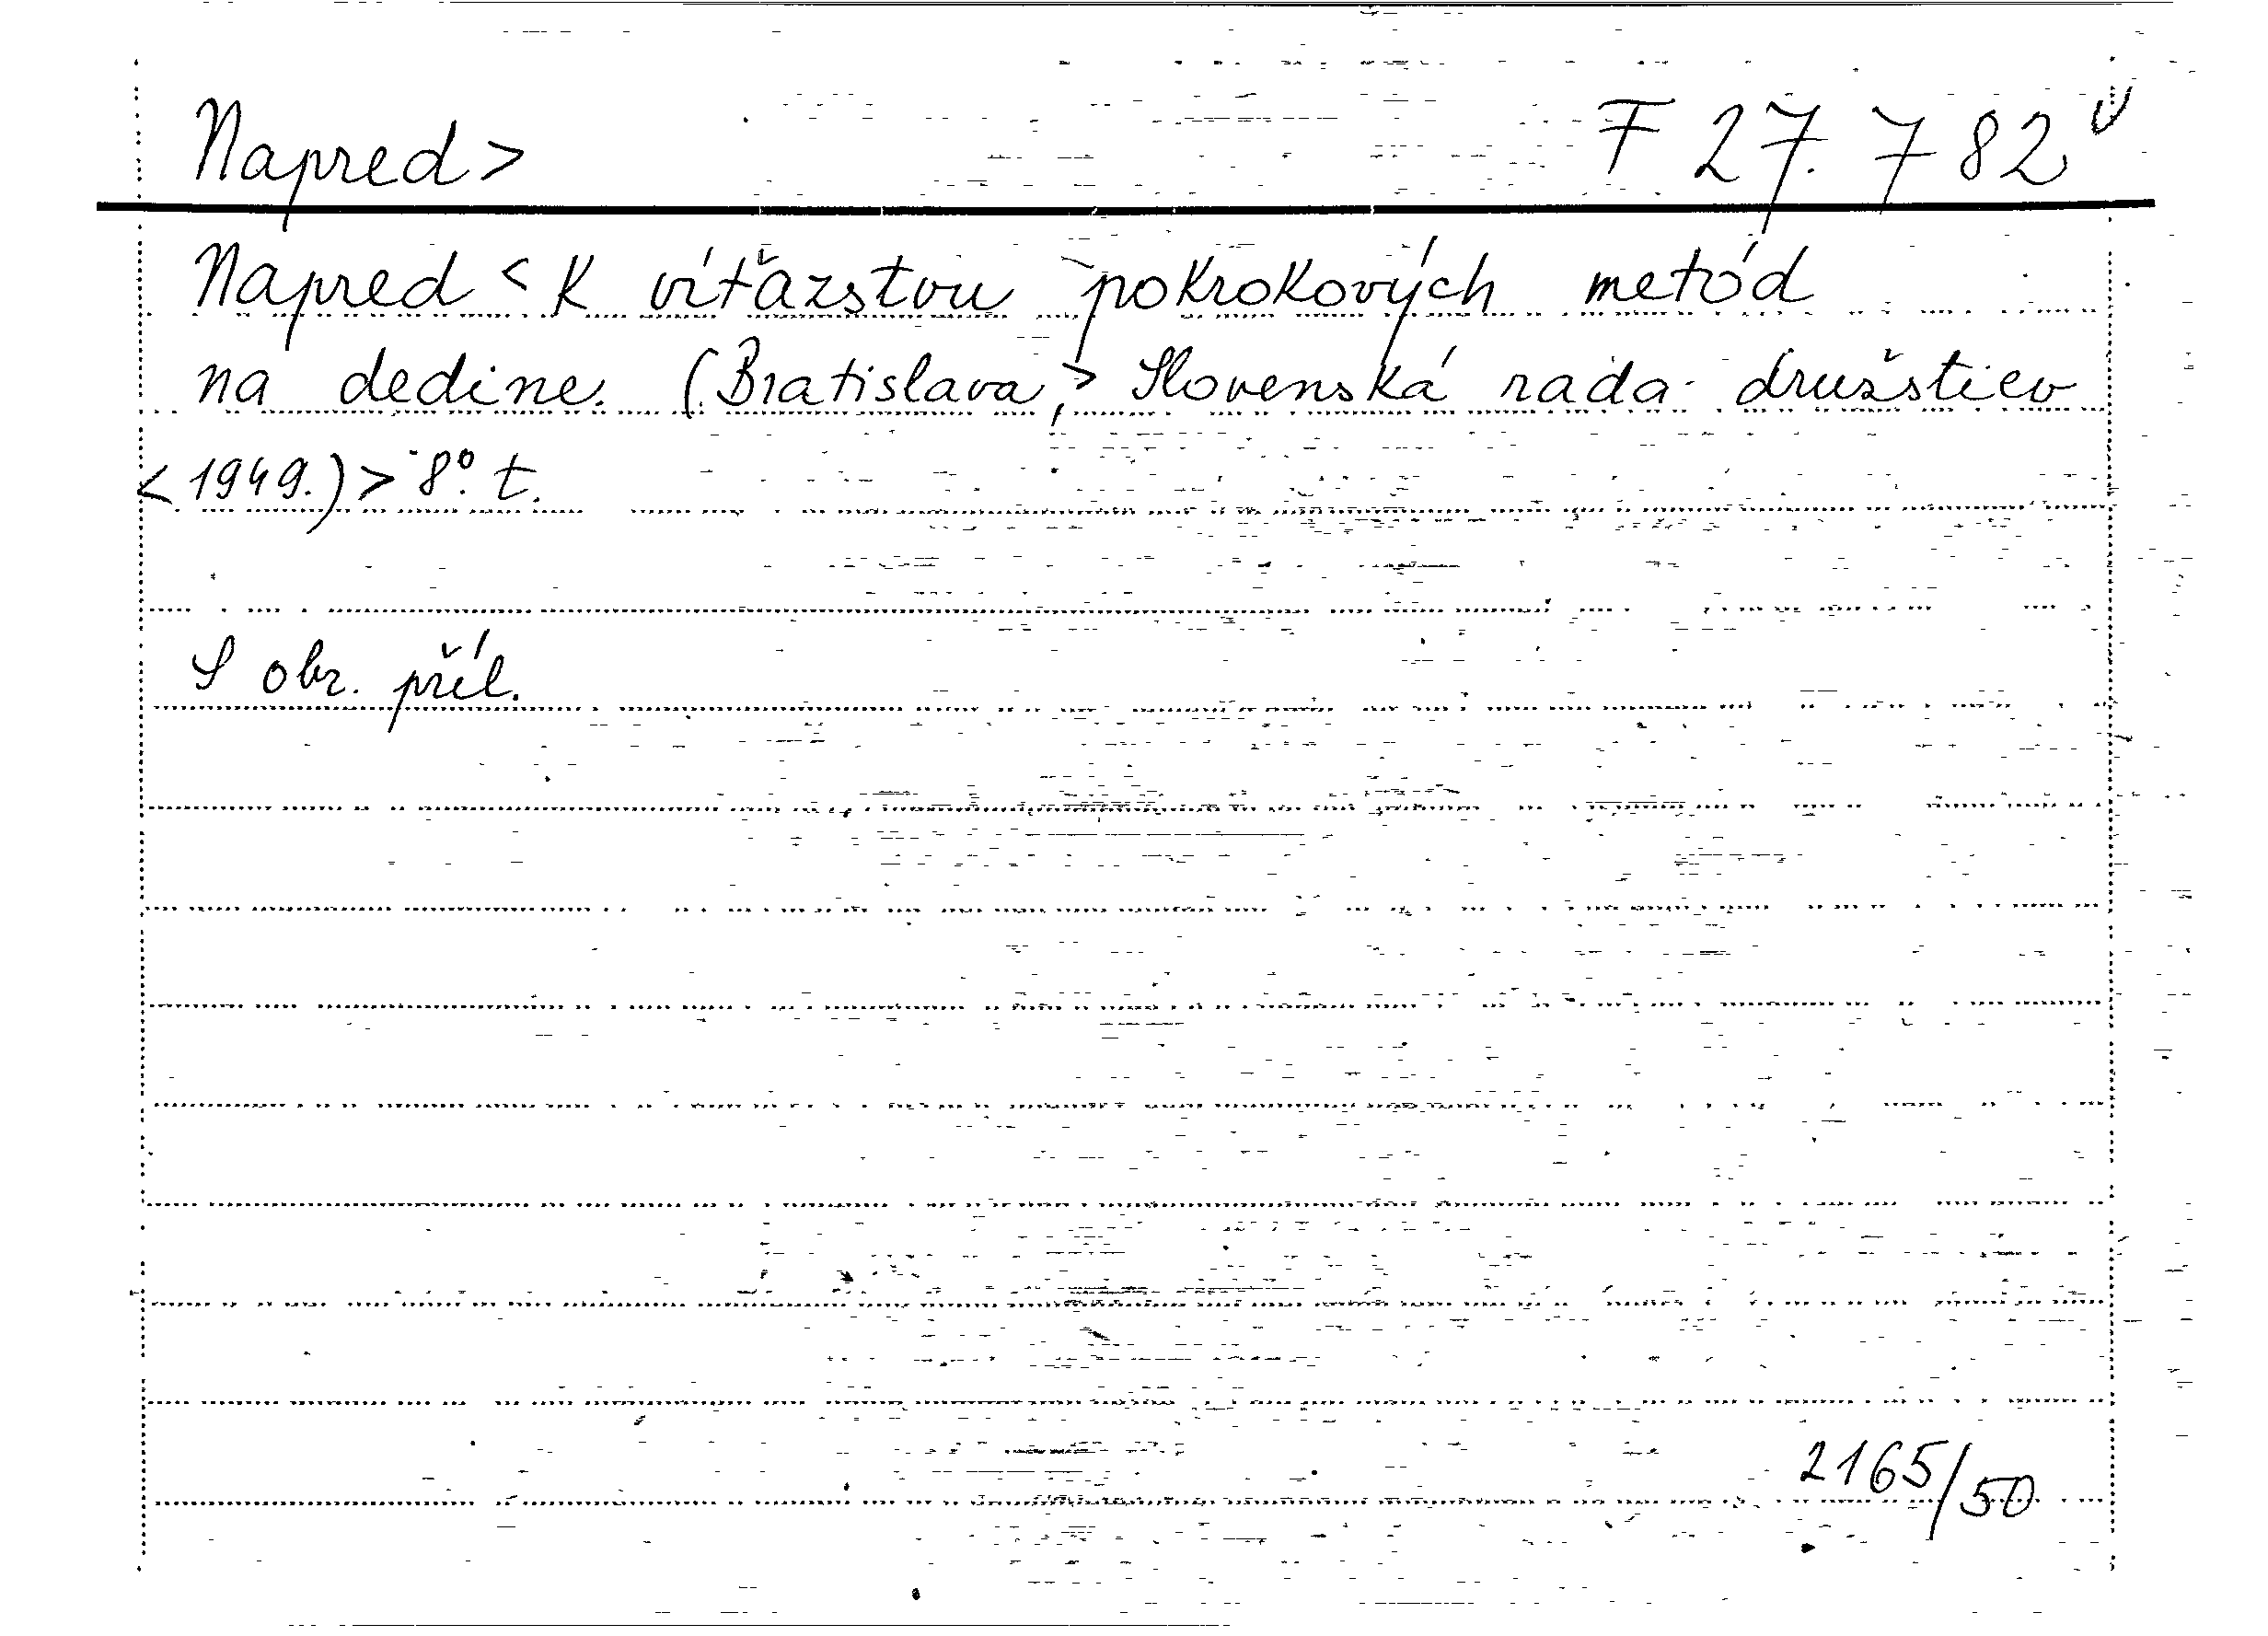 Napred> F 27.782
Napred < K víťazstvu pokrokových metód
na dedine. (Bratislava,> Slovenská rada družstiev
<1949.)> 8°. t.
S obr. příl.
2165/50